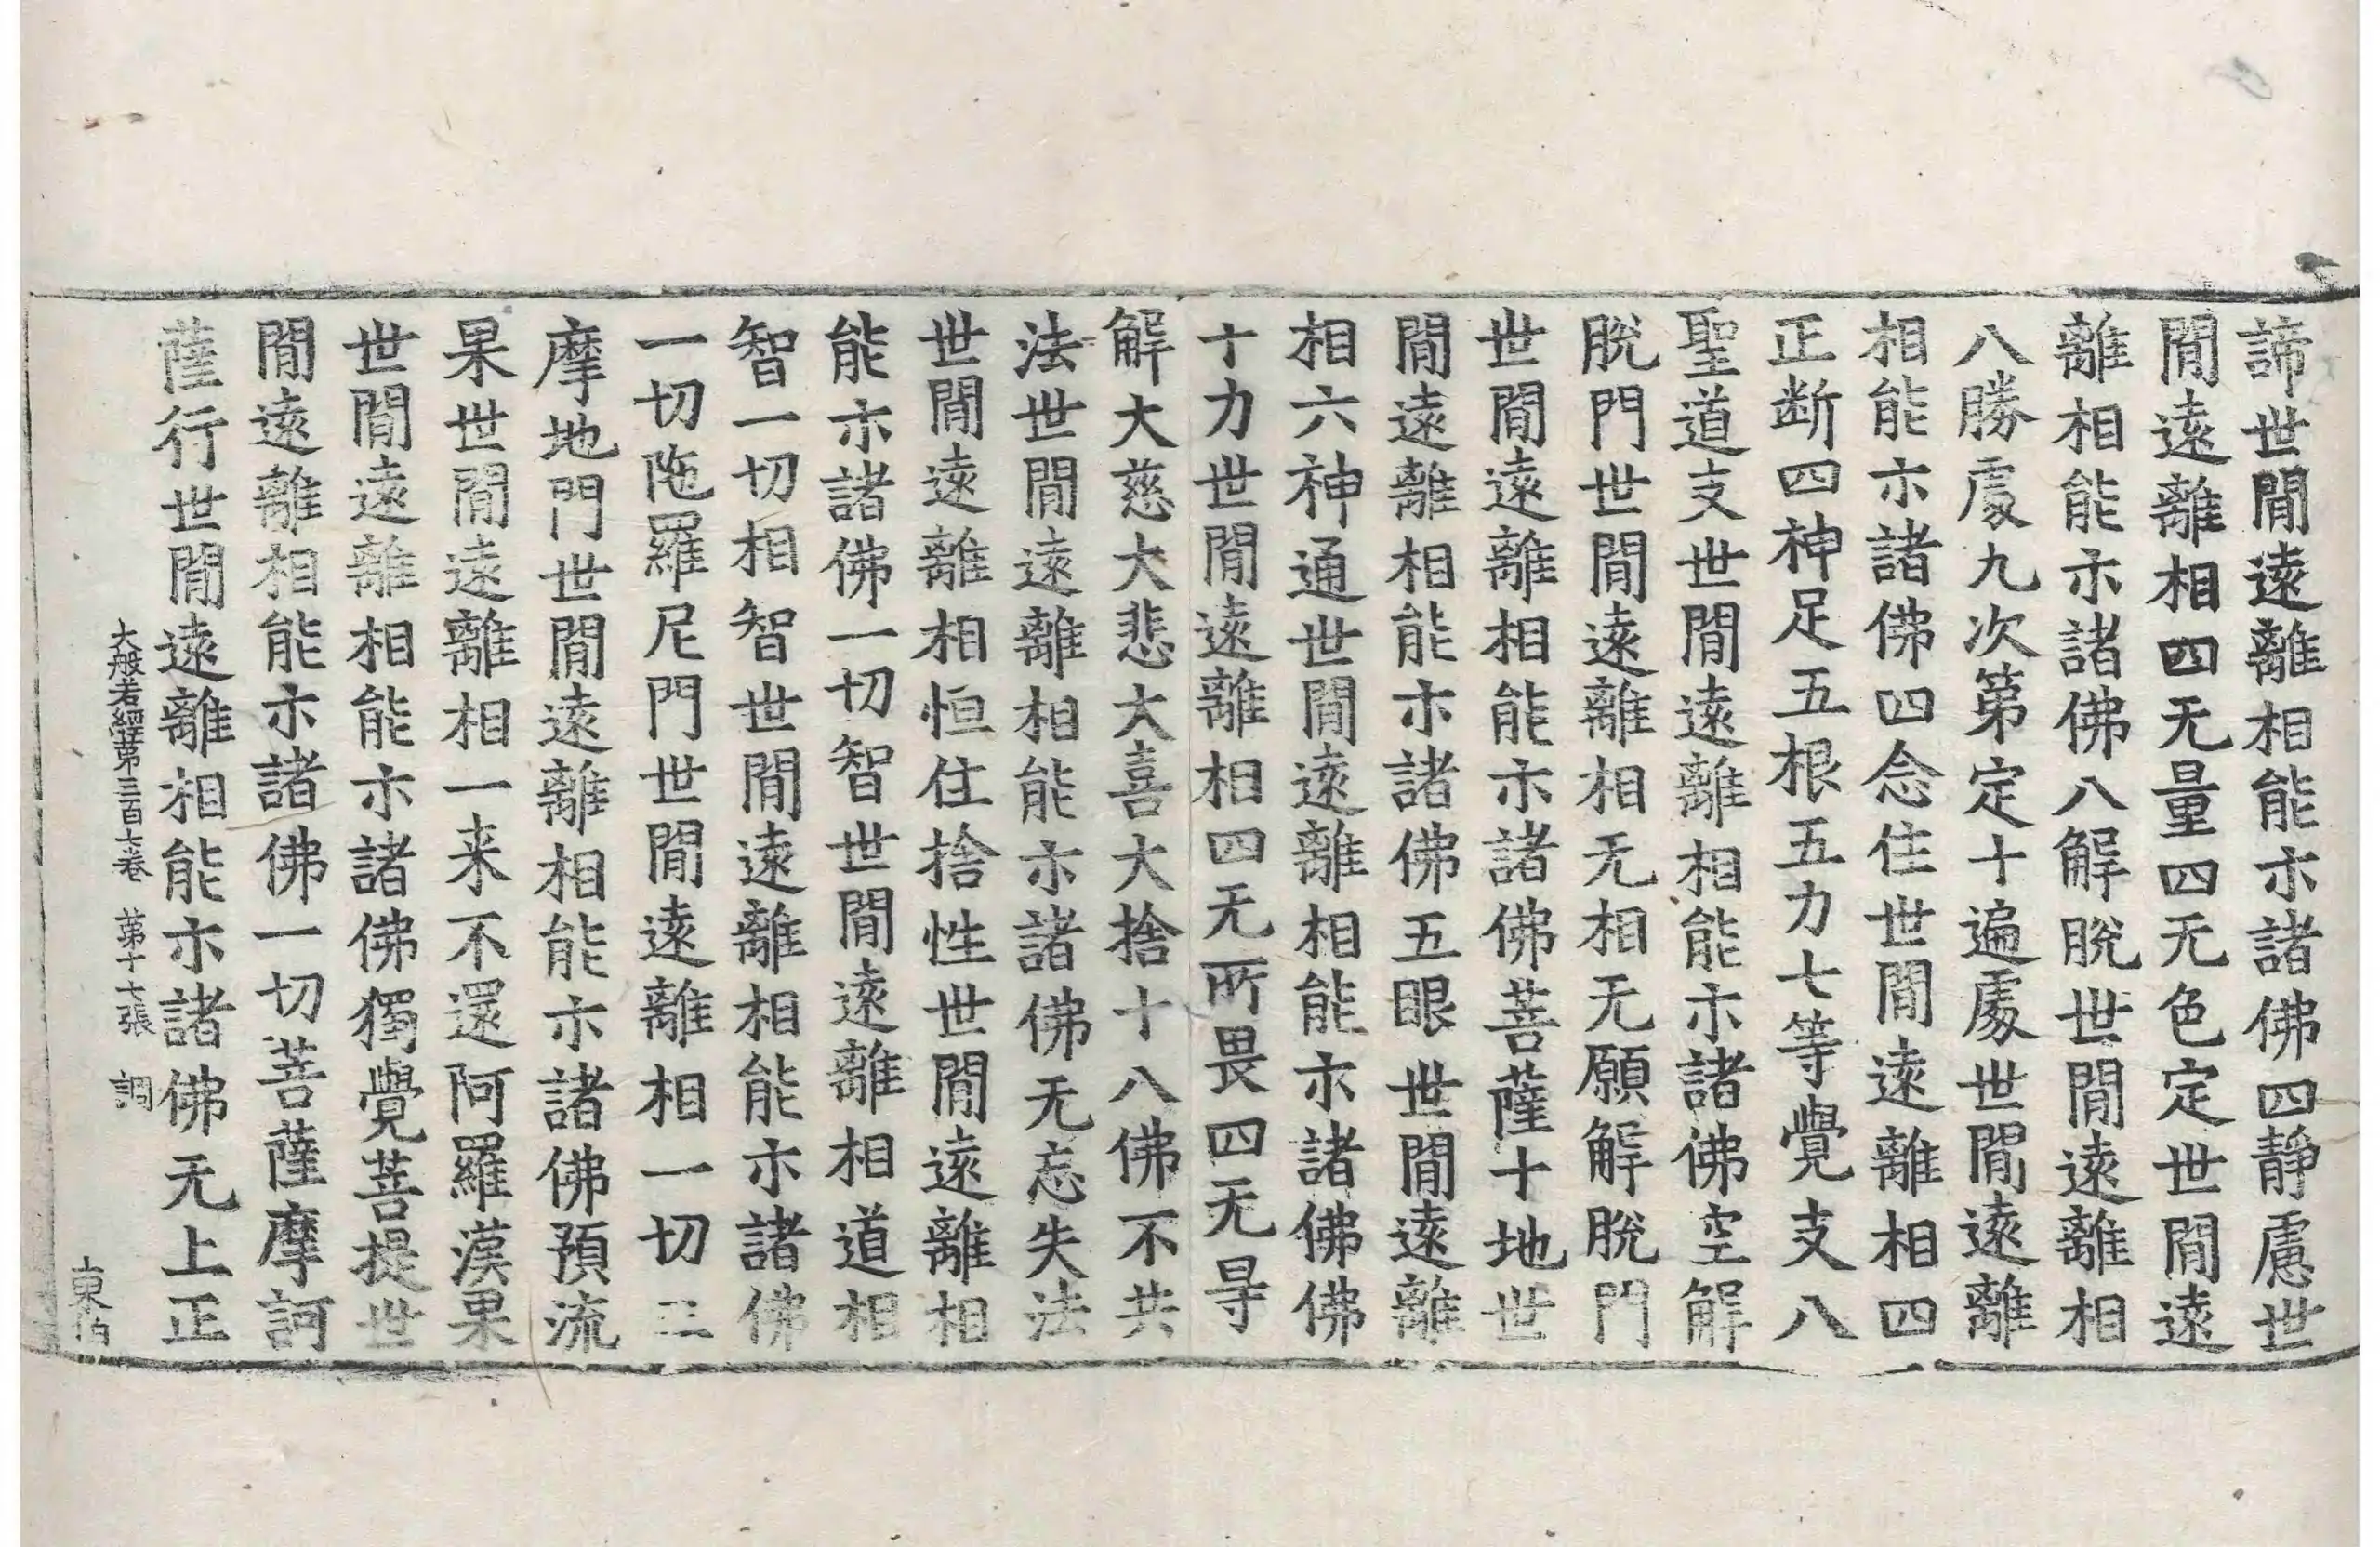 諦世閒遠離相能示諸佛四靜慮世
閒遠離相四无量四无色定世閒遠
離相能示諸佛八解脫世閒遠離相
八勝處九次第定十遍處世閒遠離
相能示諸佛四念住世閒遠離相四
正断四神足五根五力七等覺支八
聖道支世閒遠離相能示諸佛空解
脫門世閒遠離相无相无願解脫門
世閒遠離相能示諸佛菩薩十地世
閒遠離相能示諸佛五眼世閒遠離
相六神通世閒遠離相能示諸佛佛
十力世閒遠離相四无所畏四无㝵
解大慈大悲大喜大捨十八佛不共
法世閒遠離相能示諸佛无忘失法
世閒遠離相恒住捨性世閒遠離相
能示諸佛一切智世閒遠離相道相
智一切相智世閒遠離相能示諸佛
一切陁羅尼門世閒遠離相一切三
摩地門世閒遠離相能示諸佛預流
果世閒遠離相一来不還阿羅漢果
世閒遠離相能示諸佛獨覺菩提世
閒遠離相能示諸佛一切菩薩摩訶
薩行世閒遠離相能示諸佛无上正
大般若經第三百七卷 第十七張 調
東伯